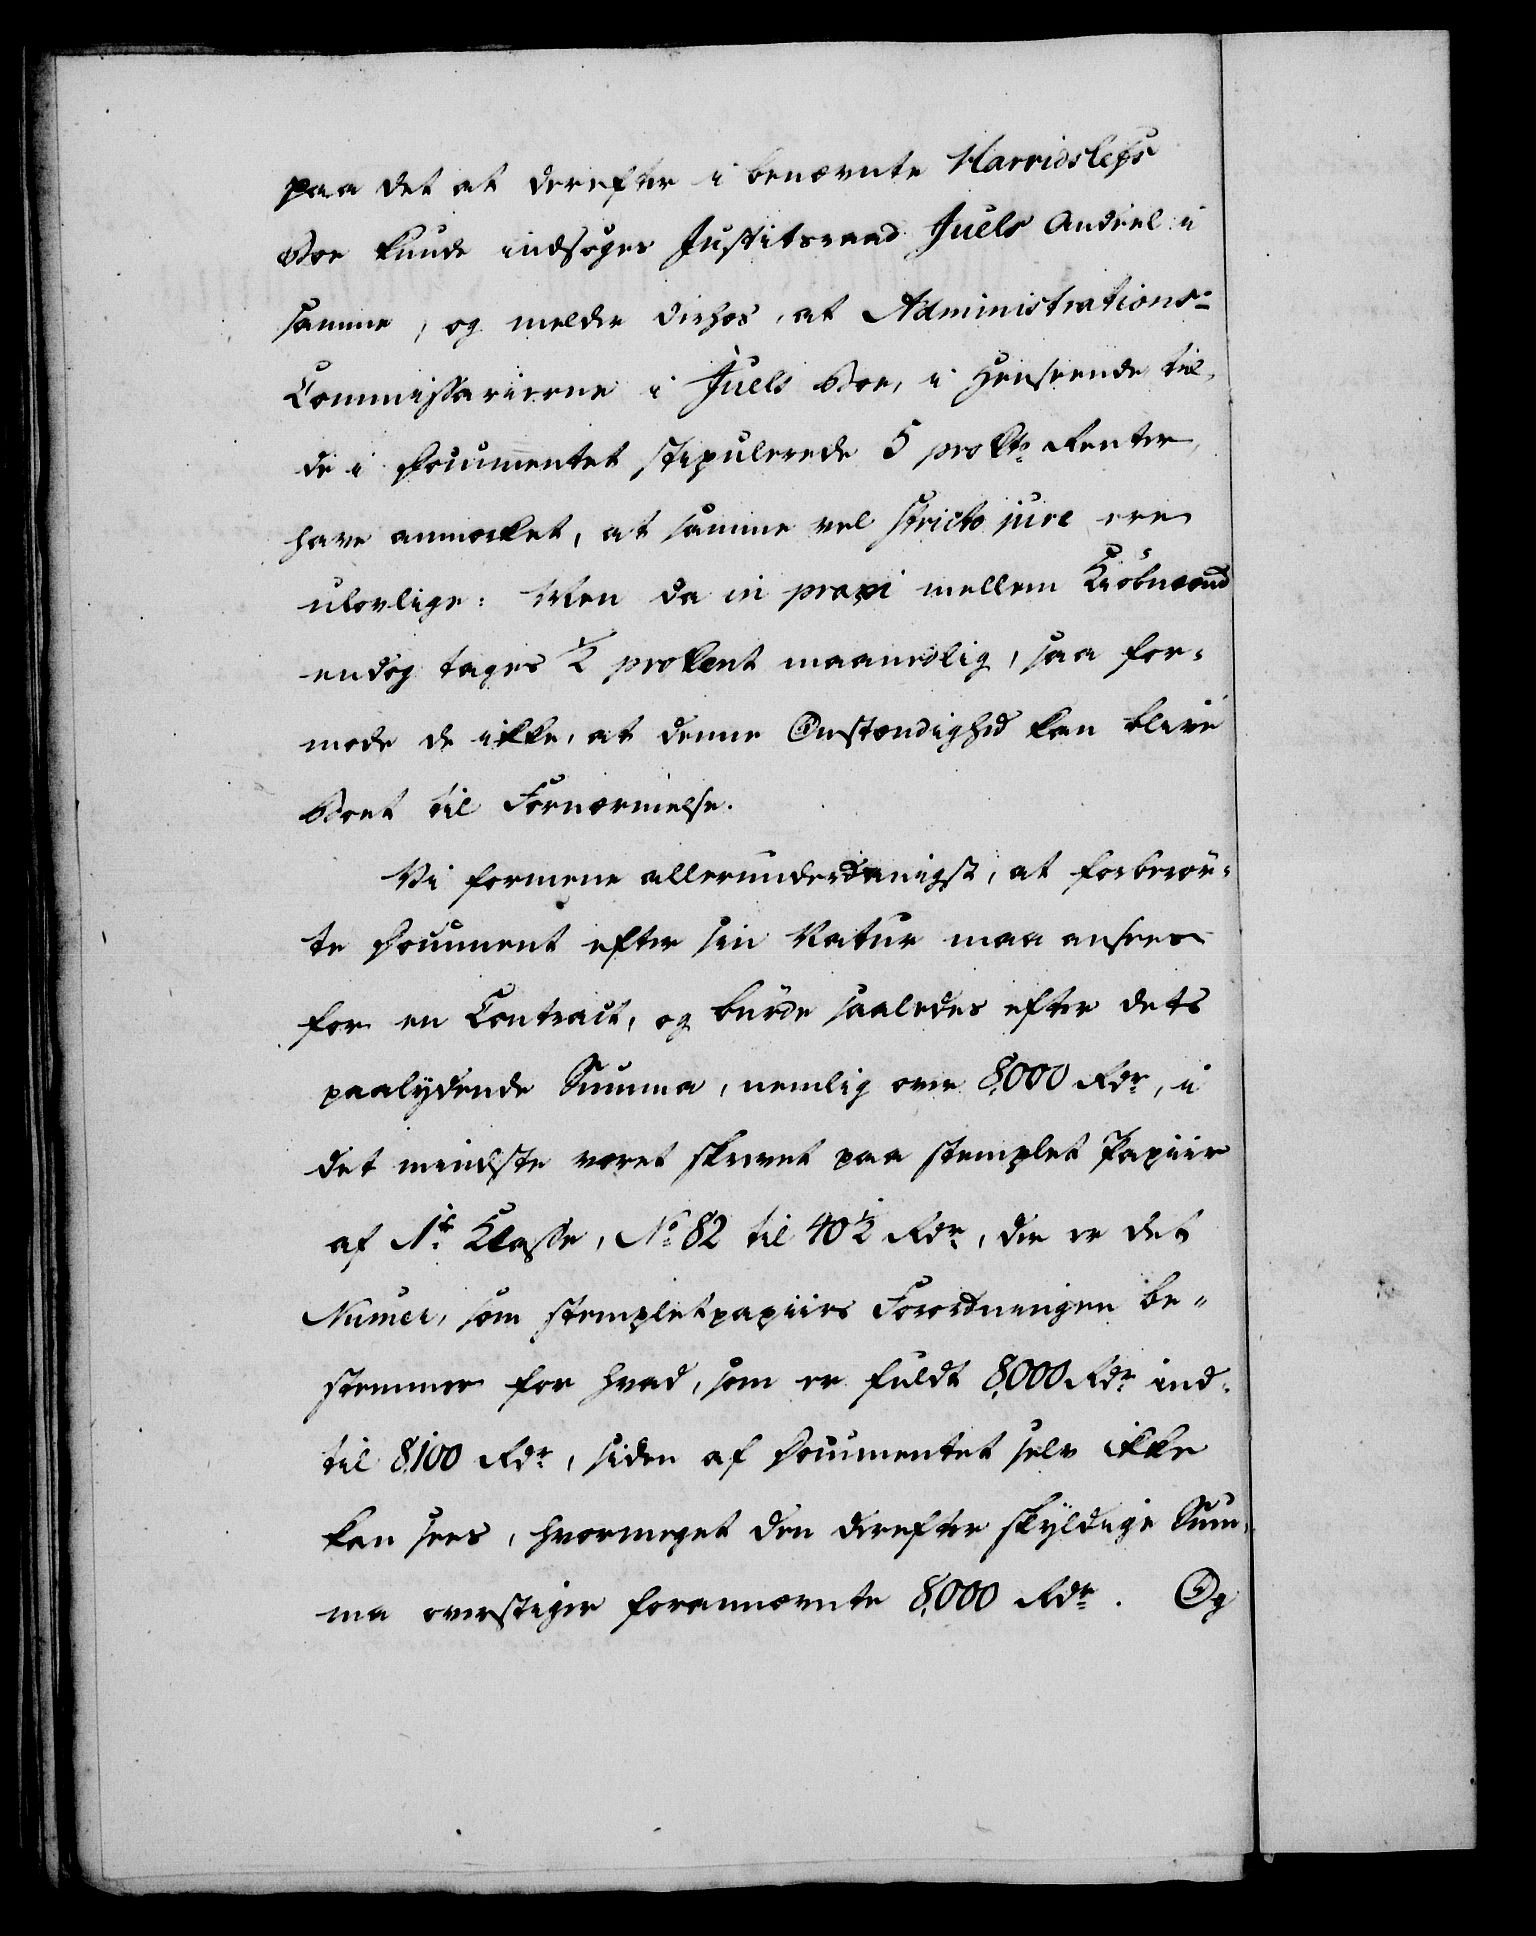 paa det at derefter i benævnte Harridslefs
Boe kunde indsøges Justitsraad Juels Andeel i
samme, og melder derhos, at Administrations-
Commissarierne i Juels Boe, i Henseende til
de i Documentet stipulerede 5 proCto Renter,
have anmerket, at samme vel stricto jure ere
ulovlige: Men da in praxi mellem Kiøbmænd
endog tages ½ proCent maanedlig, saa for-
mode de ikke, at denne Omstændighed kan blive
Boet til Fornærmelse.
Vi formene allerunderdanigst, at forberør-
te Document efter sin Natur maa ansees
for en Contract, og burde saaledes efter dets
paalydende Summa, nemlig over 8,000 Rdr, i
det mindste været skrevet paa stemplet Papiir
af 1te Classe, No 82 til 40½ Rdr, der er det
Numer, som stempletpapiirs Forordningen be-
stemmer for hvad, som er fuldt 8,000 Rdr ind-
til 8,100 Rdr, siden af Documentet selv ikke
kan sees, hvormeget den derefter skyldige Sum-
ma overstiger forannævnte 8,000 Rdr. Og